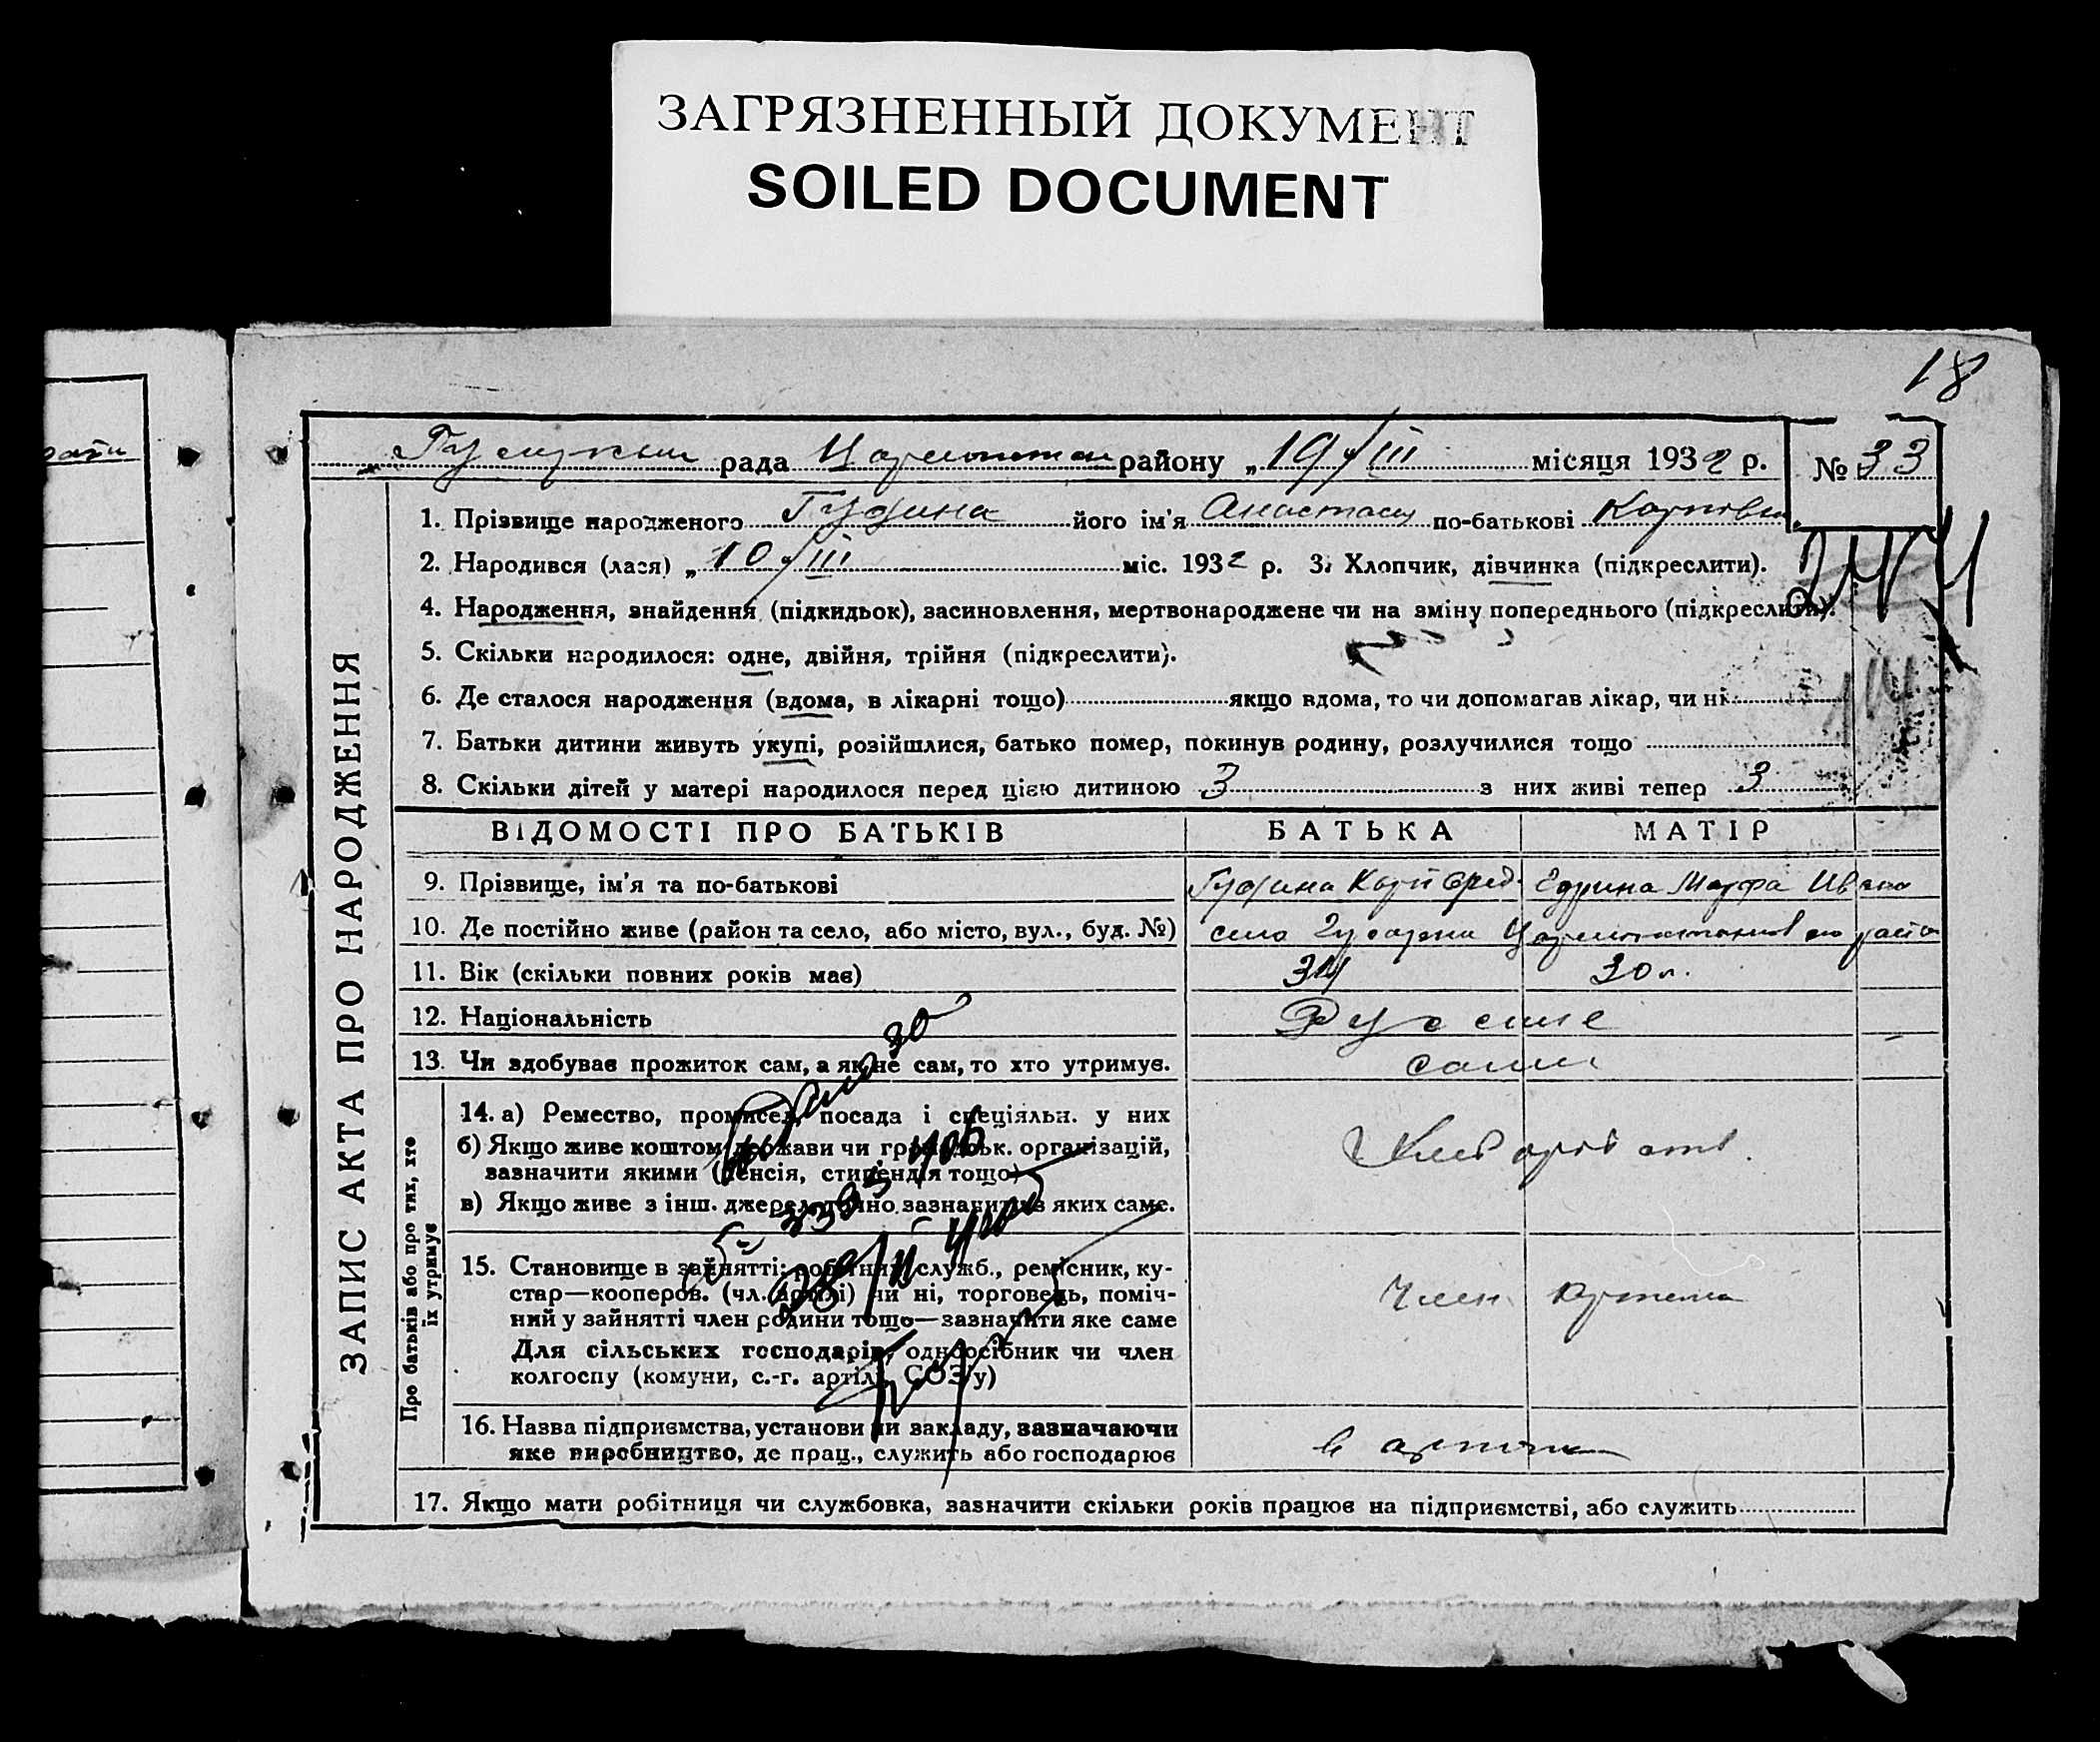 ЗАГРЯЗНЕННЫЙ ДОКУМЕНТ
SOILED DOCUMENT
18
рада района району „19/III місяця 1932 р. № 33
1. Прізвище народженого Гудина його ім'я Анастасия по-батькові Карповна
2. Народився (лася) „10/III міс. 1932 р. 3. Хлопчик, дівчинка (підкреслити).
4. Народження, знайдення (підкидьок), засиновлення, мертвонароджене чи на зміну попереднього (підкреслити).
5. Скільки народилося: одне, двійня, трійня (підкреслити).
6. Де сталося народження (вдома, в лікарні тощо) якщо вдома, то чи допомагав лікар, чи ні
7. Батьки дитини живуть укупі, розійшлися, батько помер, покинув родину, розлучилися тощо
8. Скільки дітей у матері народилося перед цією дитиною 3 з них живі тепер 3
ЗАПИС АКТА ПРО НАРОДЖЕННЯ
ВІДОМОСТІ ПРО БАТЬКІВ БАТЬКА МАТІР
9. Прізвище, ім'я та по-батькові Гудина Карп Марфа Ивано
10. Де постійно живе (район та село, або місто, вул., буд. №) село
11. Вік (скільки повних років має) 34 30 л.
12. Національність
13. Чи здобуває прожиток сам, а як не сам, то хто утримує. сами
Про батьків або про тих, хто їх утримує
14. а) Ремество, промисел, посада і спеціяльн. у них
б) Якщо живе коштом держави чи громадськ. організацій,
зазначити якими (пенсія, стипендія тощо)
в) Якщо живе з інш. джерел, точно зазначити з яких саме.
15. Становище в зайнятті: робітник, служб., ремісник, ку-
стар—кооперов. (чл. артілі) чи ні, торговець, поміч-
ний у зайнятті член родини тощо—зазначити яке саме
Член артели
Для сільських господарів, одноосібник чи член
колгоспу (комуни, с.-г. артілі, СОЗ'у)
16. Назва підприємства, установи чи закладу, зазначаючи
яке виробництво, де прац., служить або господарює
в артели
17. Якщо мати робітниця чи службовка, зазначити скільки років працює на підприємстві, або служить